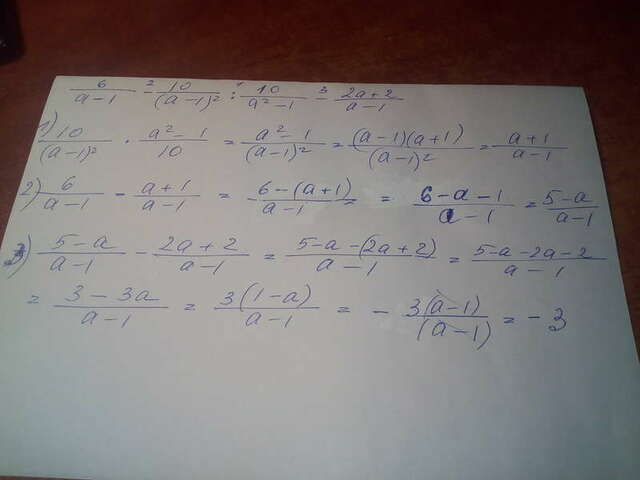 6/(a-1) -² 10/(a-1)² :¹ 10/(a²-1) -³ (2a+2)/(a-1)
1) 10/(a-1)² · (a²-1)/10 = (a²-1)/(a-1)² = (a-1)(a+1)/(a-1)² = (a+1)/(a-1)
2) 6/(a-1) - (a+1)/(a-1) = (6-(a+1))/(a-1) = = (6-a-1)/(a-1) = (5-a)/(a-1)
3) (5-a)/(a-1) - (2a+2)/(a-1) = (5-a-(2a+2))/(a-1) = (5-a-2a-2)/(a-1)
= (3-3a)/(a-1) = 3(1-a)/(a-1) = - 3(a-1)/(a-1) = -3